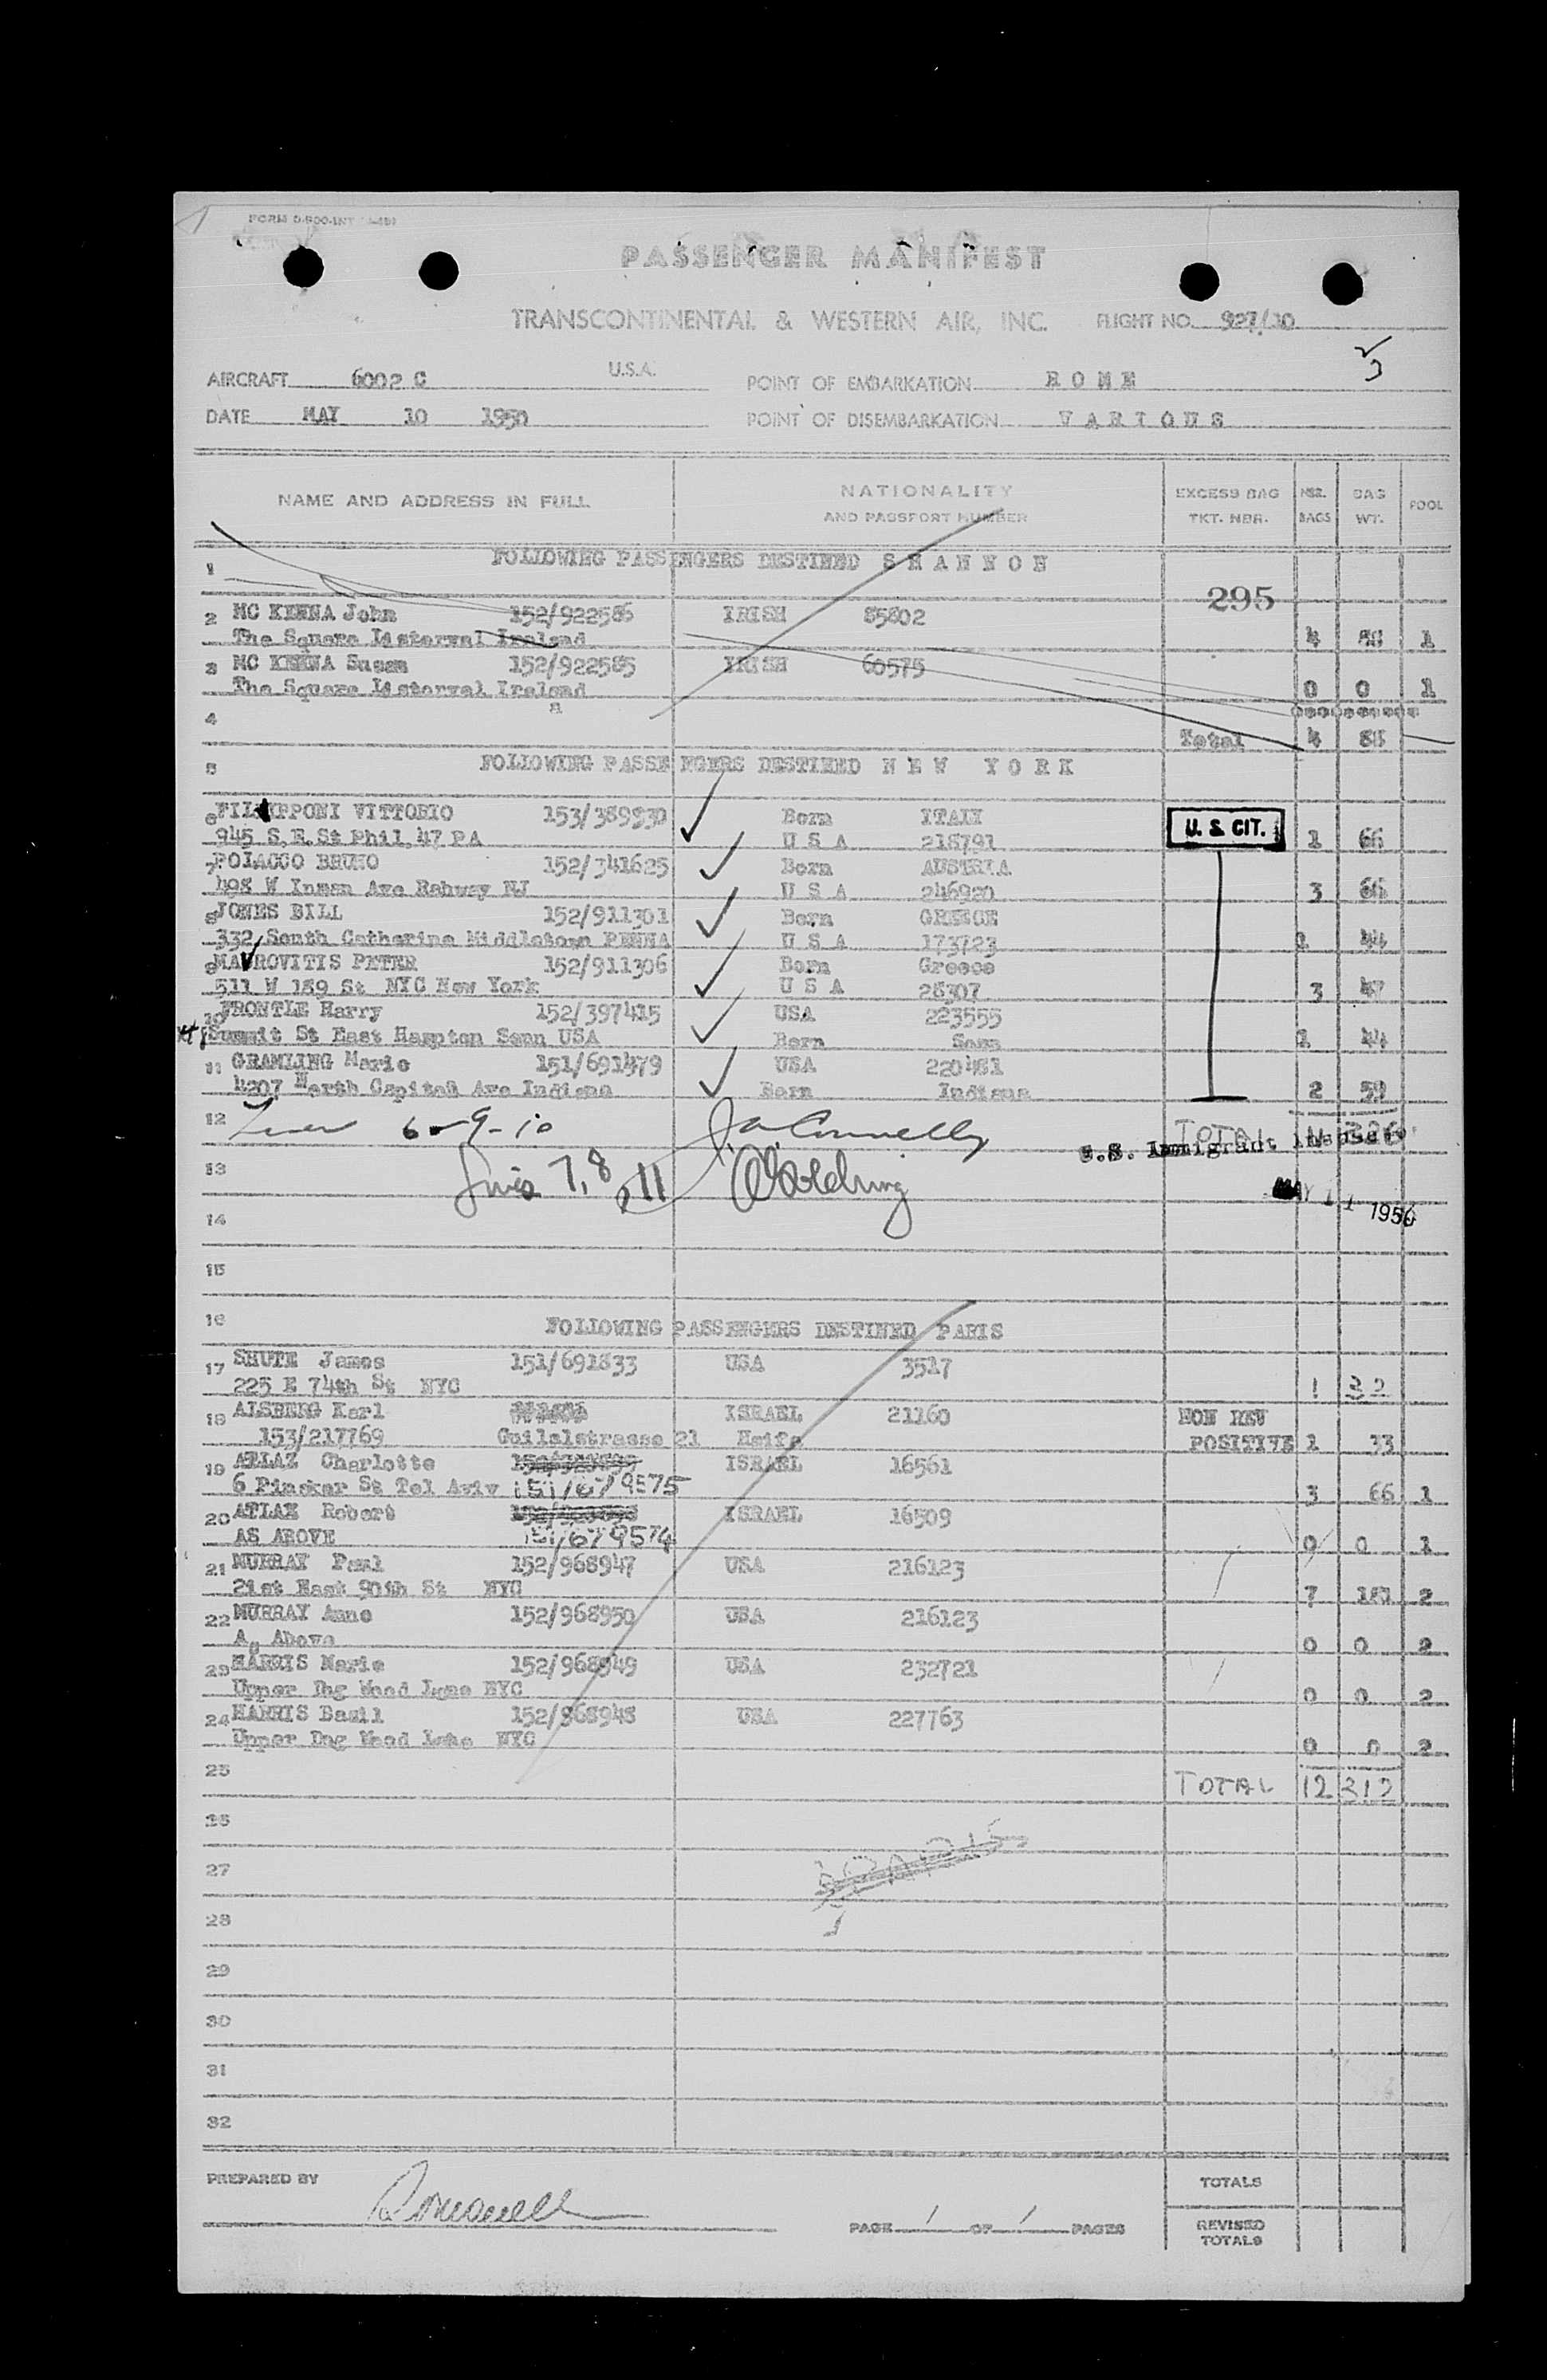 PASSENGER MANIFEST
TRANSCONTINENTAL & WESTERN AIR, INC. FLIGHT NO. 927/10
U.S.A.
AIRCRAFT 6002 C POINT OF EMBARKATION ROME
DATE MAY 10 1950 POINT OF DISEMBARKATION VARIOUS
NAME AND ADDRESS IN FULL NATIONALITY AND PASSPORT NUMBER EXCESS BAG TKT. NBR. NBR. BAGS BAG WT. POOL
1 FOLLOWING PASSENGERS DESTINED SHANNON
295
2 MC KENNA John 152/922586 IRISH 85802
The Square Listorwal Irelsad 4 1
3 MC KENNA Susan 152/922585 IRISH 60575
The Square Listorwal Irelsad 0 0 1
a
4 Total 4
5 FOLLOWING PASSENGERS DESTINED NEW YORK
6 FILIPPONI VITTORIO 153/389930 Born ITALY
945 S.E.St Phil.47 PA U S A 218791 U. S. CIT. 1 66
7 POLACCO BRUNO 152/341625 Born AUSTRIA
498 W Inman Ave Rahway NJ U S A 246920 3 66
8 JONES BILL 152/911301 Born GREECE
332 South Catherine Middletown PENNA U S A 173723 1 44
9 MAVROVITIS PETER 152/911306 Born Greece
511 W 189 St NYC New York U S A 28307 3 47
10 FRONTLE Harry 152/397415 USA 223555
Summit St East Hampton Conn USA Born Conn 1 44
11 GRAMLING Marie 151/691479 USA 220481
4207 North Capitol Ave Indiana Born Indiana 2 59
12 6-9-10 J. A. Connelly TOTAL 11 326
U.S. Immigrant Inspector
13 Lines 7, 8, 11
MAY 11 1950
14
15
16 FOLLOWING PASSENGERS DESTINED PARIS
17 SHUTE James 151/691833 USA 3517
225 E 74th St NYC 1 32
18 ALSBERG Karl ISRAEL 21160 NON REV
153/217769 Guilelstrasse 21 Haifa POSITIVE 1 33
19 ATLAZ Charlotte ISRAEL 16561
6 Pinsker St Tel Aviv 151/679575 3 66 1
20 ATLAZ Robert ISRAEL 16509
AS ABOVE 151/679574 0 0 1
21 MURRAY Paul 152/968947 USA 216123
21st East 90th St NYC 7 181 2
22 MURRAY Anne 152/968950 USA 216123
As Above 0 0 2
23 HARRIS Marie 152/968949 USA 232721
Upper Dog Wood Lane NYC 0 0 2
24 HARRIS Basil 152/968948 USA 227763
Upper Dog Wood Lane NYC 0 0 2
25 TOTAL 12 312
26
27
28
29
30
31
32
PREPARED BY TOTALS
PAGE 1 OF 1 PAGES REVISED TOTALS